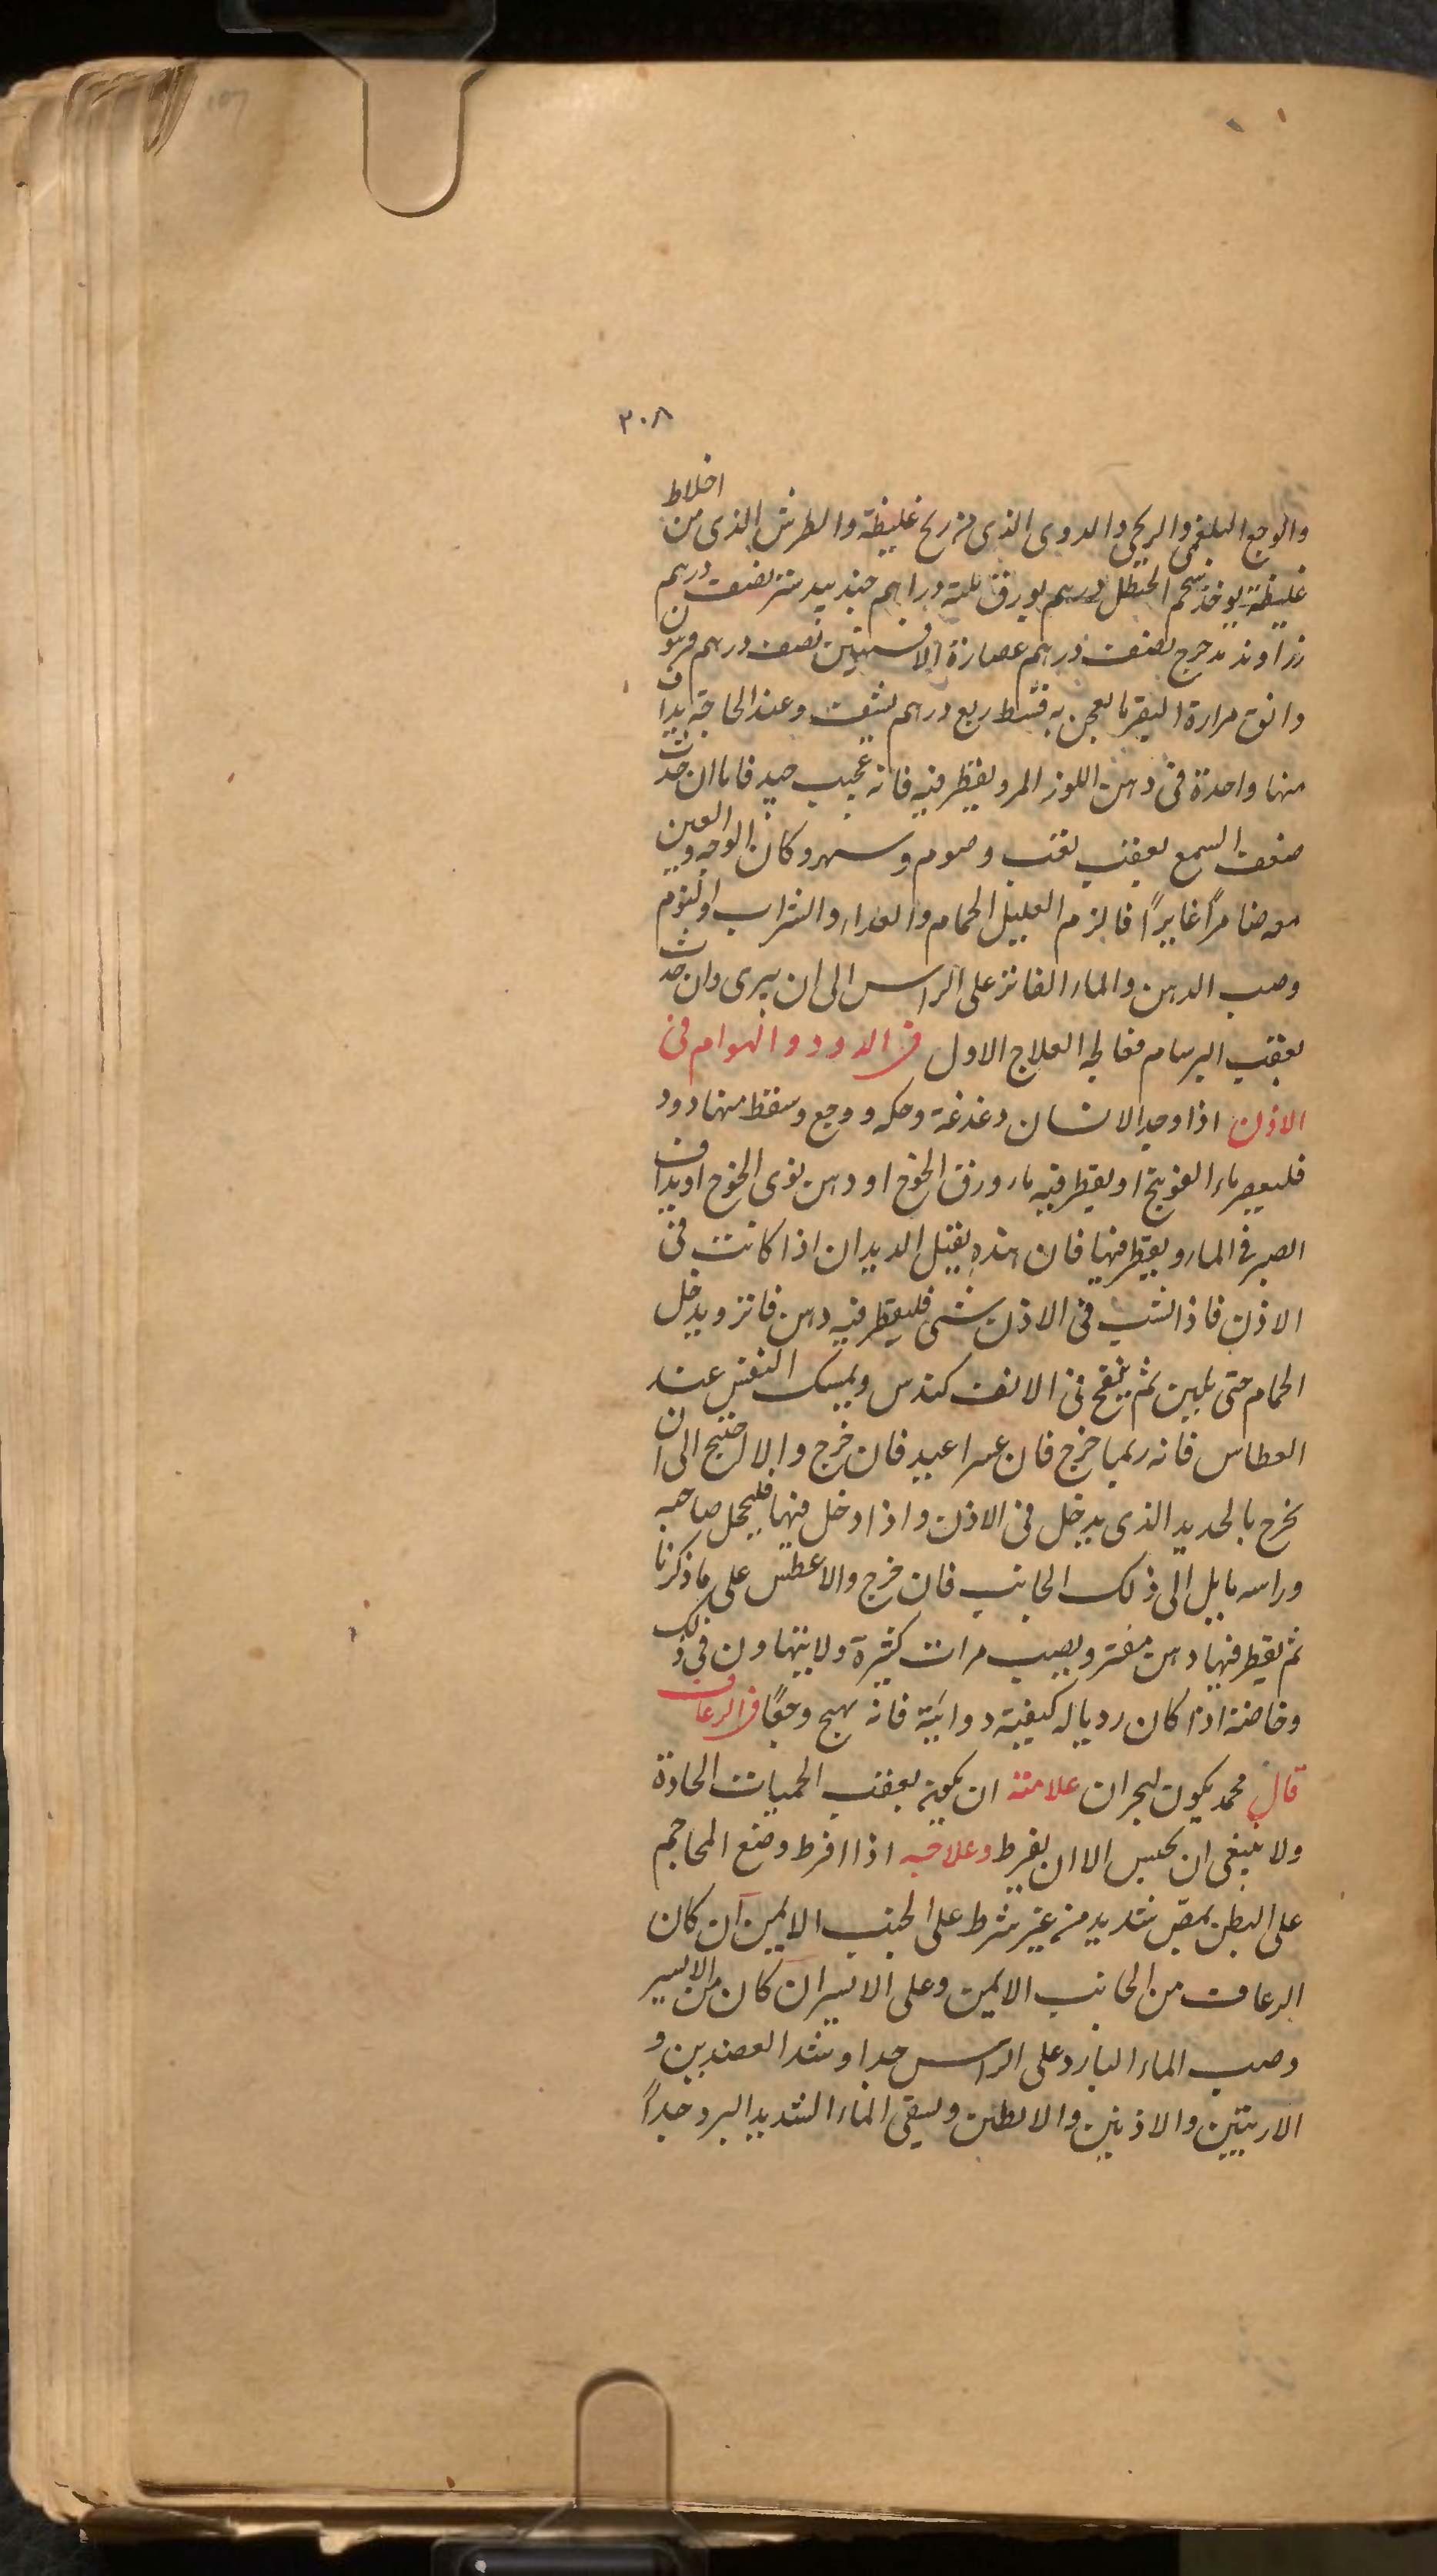 ٣٠٨
والوجع البلغمى والريحى والدوى الذى من ريح غليظة والطرش الذى من اخلاط
غليظة يوخذ شحم الحنظل درهم بورق ثلثة دراهم جندبيدستر نصف درهم
زراوند مدحرج نصف درهم عصارة الافسنتين نصف درهم فربيون
دانق مرارة البقر ما يعجن به قسط ربع درهم يشيف وعند الحاجة يداف
منها واحدة فى دهن اللوز المر ويقطر فيه فانه عجيب جيد فاما ان حدث
ضعف السمع بعقب تعب وصوم وسهر وكان الوجه والعين
معه ضامرًا غايرًا فالزم العليل الحمام والغداء والشراب والنوم
وصب الدهن والماء الفاتر على الراس الى ان يبرى وان حدث
بعقب البرسام فعالجه العلاج الاول فى الدود والهوام فى
الاذن اذا وجد الانسان دغدغة وحكه ووجع وسقط منها دود
فليعصر ماء الفوتنج او يقطر فيه ماء ورق الخوخ او دهن نوى الخوخ او يداف
الصبر فى الماء ويقطر فيها فان هذه يقتل الديدان اذا كانت فى
الاذن فاذا نشب فى الاذن شى فليقطر فيه دهن فاتر ويدخل
الحمام حتى يلين ثم ينفخ فى الانف كندس ويمسك النفس عند
العطاس فانه ربما خرج فان عسر اعيد فان خرج والا احتيج الى ان
يخرج بالحديد الذى يدخل فى الاذن واذا دخل فيها فليحجل صاحبه
وراسه مايل الى ذلك الجانب فان خرج والا عطس على ما ذكرنا
ثم يقطر فيها دهن مفتر ويصب مرات كثيرة ولا يتهاون فى ذلك
وخاصة اذا كان رديا له كيفية دوائية فانه يهيج وجعًا فى الرعاف
قال محمد يكون لبحران علامته ان يكون بعقب الحميات الحادة
ولا ينبغى ان يحبس الا ان يفرط وعلاجه اذا افرط وضع المحاجم
على البطن بمص شديد من غير شرط على الجنب الايمن ان كان
الرعاف من الجانب الايمن وعلى الايسر ان كان من الايسر
وصب الماء البارد على الراس جدا وشد العضدين و
الاربيتين والاذنين والابطين ويسقى الماء الشديد البرد جداً